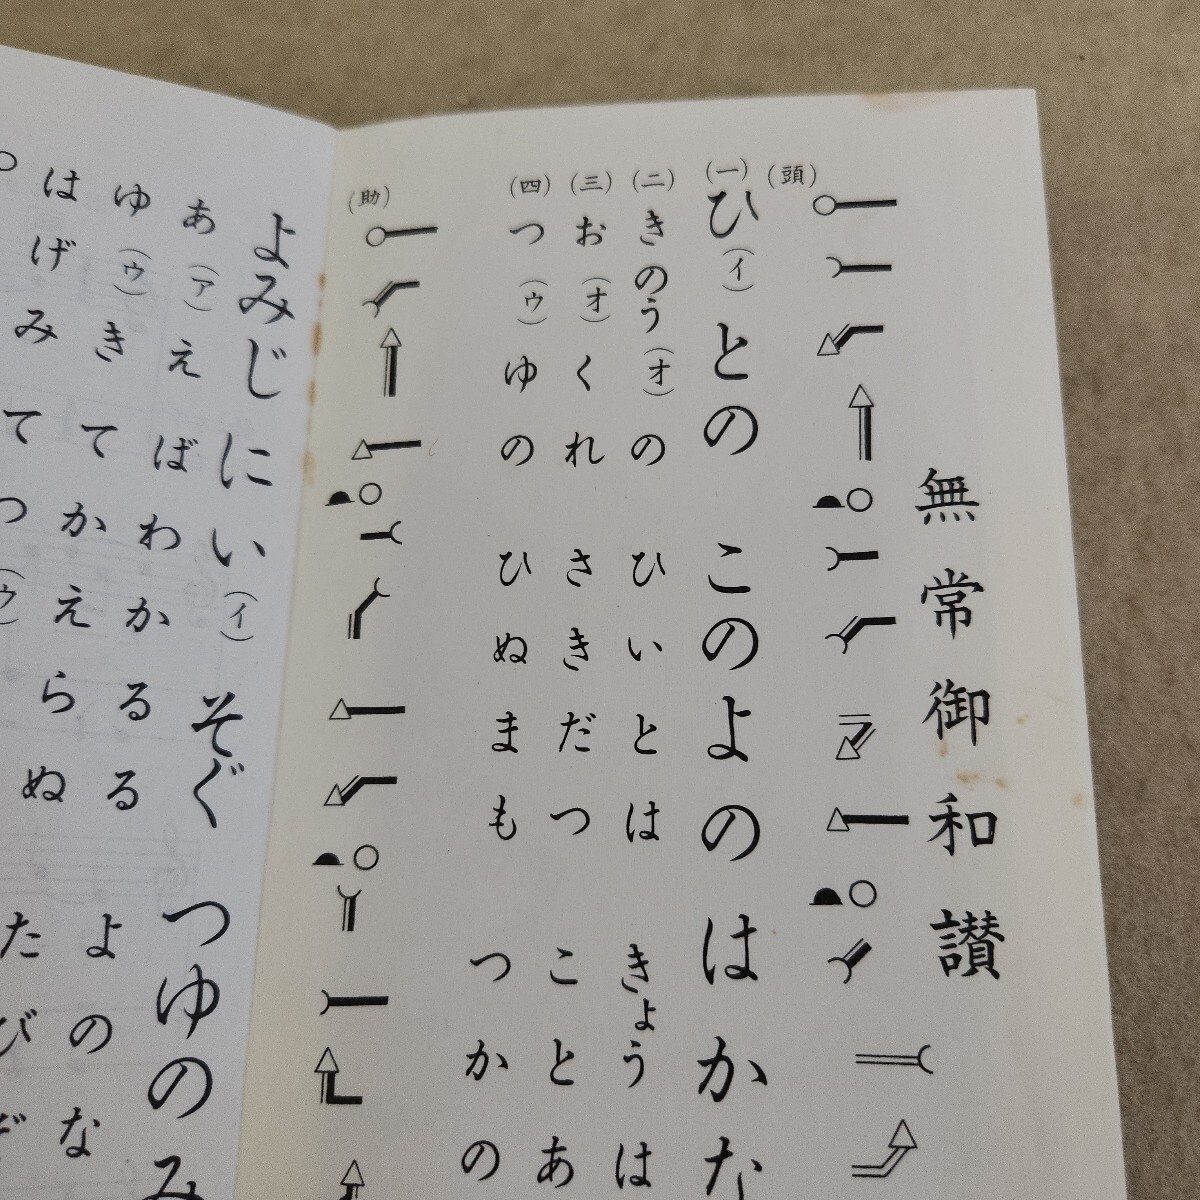 無常御和讃
(頭)
(一)ひ(イ)との このよのはかな
(二)きのう(オ)の ひいとは きょうは
(三)お(オ)くれ さきだつ ことあ
(四)つ(ウ)ゆの ひぬまも つかの
(助)
よみじにい(イ)そぐ つゆのみ
あ(ア)えばわかるる よのな
ゆ(ウ)きてかえらぬ たび
はげみてつ(ウ)